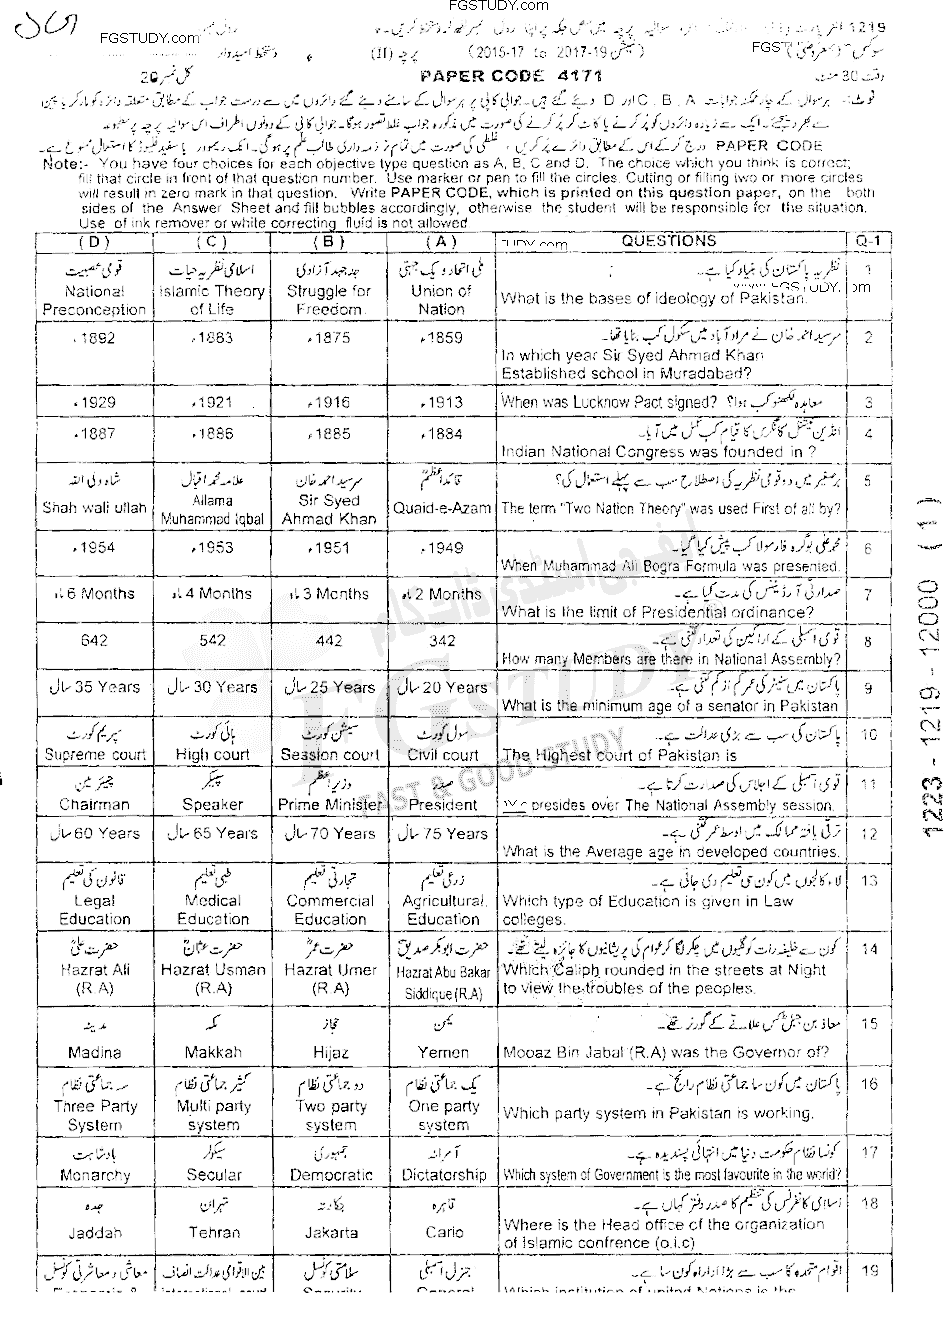 FGSTUDY.com
1219
FGSTUDY.com
(2015-17 to 2017-19 سیشن)
پرچہ (II)
دستخط امیدوار
وقت 30 منٹ
PAPER CODE 4171
کل نمبر 20
Note:- You have four choices for each objective type question as A, B, C and D. The choice which you think is correct;
fill that circle in front of that question number. Use marker or pen to fill the circles. Cutting or filling two or more circles
will result in zero mark in that question. Write PAPER CODE, which is printed on this question paper, on the both
sides of the Answer Sheet and fill bubbles accordingly, otherwise the student will be responsible for the situation.
Use of ink remover or white correcting fluid is not allowed
(D) (C) (B) (A) QUESTIONS Q-1
قومی عصبیت اسلامی نظریہ حیات جدوجہد آزادی ملی اتحاد و یک جہتی نظریہ پاکستان کی بنیاد کیا ہے۔ 1
National Islamic Theory Struggle for Union of
Preconception of Life Freedom. Nation What is the bases of ideology of Pakistan.
1892ء 1883ء 1875ء 1859ء سرسید احمد خان نے مراد آباد میں سکول کب بنایا تھا۔ 2
In which year Sir Syed Ahmad Khan
Established school in Muradabad?
1929ء 1921ء 1916ء 1913ء When was Lucknow Pact signed? معاہدہ لکھنؤ کب ہوا؟ 3
1887ء 1886ء 1885ء 1884ء انڈین نیشنل کانگرس کا قیام کب عمل میں آیا۔ 4
Indian National Congress was founded in ?
شاہ ولی اللہ علامہ محمد اقبال سرسید احمد خان قائد اعظم برصغیر میں دو قومی نظریہ کی اصطلاح سب سے پہلے استعمال کی؟ 5
Shah wali ullah Allama Muhammad Iqbal Sir Syed Ahmad Khan Quaid-e-Azam The term "Two Nation Theory" was used First of all by?
1954ء 1953ء 1951ء 1949ء محمد علی بوگرہ فارمولا کب پیش کیا گیا۔ 6
When Muhammad Ali Bogra Formula was presented.
6 Months ماہ 4 Months ماہ 3 Months ماہ 2 Months ماہ صدارتی آرڈیننس کی مدت کیا ہے۔ 7
What is the limit of Presidential ordinance?
642 542 442 342 قومی اسمبلی کے اراکین کی تعداد کتنی ہے۔ 8
How many Members are there in National Assembly?
35 Years سال 30 Years سال 25 Years سال 20 Years سال پاکستان میں سینیٹر کی عمر کم از کم کتنی ہے۔ 9
What is the minimum age of a senator in Pakistan
سپریم کورٹ ہائی کورٹ سیشن کورٹ سول کورٹ پاکستان کی سب سے بڑی عدالت ہے۔ 10
Supreme court High court Session court Civil court The Highest court of Pakistan is
چیئرمین سپیکر وزیراعظم صدر قومی اسمبلی کے اجلاس کی صدارت کرتا ہے۔ 11
Chairman Speaker Prime Minister President presides over The National Assembly session.
60 Years سال 65 Years سال 70 Years سال 75 Years سال ترقی یافتہ ممالک میں اوسط عمر کتنی ہے۔ 12
What is the Average age in developed countries.
قانون کی تعلیم طبی تعلیم تجارتی تعلیم زرعی تعلیم لاء کالجوں میں کون سی تعلیم دی جاتی ہے۔ 13
Legal Medical Commercial Agricultural Which type of Education is given in Law
Education Education Education Education colleges.
حضرت علیؓ حضرت عثمانؓ حضرت عمرؓ حضرت ابوبکر صدیقؓ کون سے خلیفہ رات کو گلیوں میں چکر لگا کر عوام کی پریشانیوں کا جائزہ لیتے تھے۔ 14
Hazrat Ali Hazrat Usman Hazrat Umer Hazrat Abu Bakar Which Caliph rounded in the streets at Night
(R.A) (R.A) (R.A) Siddique (R.A) to view the troubles of the peoples.
مدینہ مکہ حجاز یمن معاذ بن جبلؓ کس علاقے کے گورنر تھے۔ 15
Madina Makkah Hijaz Yemen Mooaz Bin Jabal (R.A) was the Governor of?
سہ جماعتی نظام کثیر جماعتی نظام دو جماعتی نظام یک جماعتی نظام پاکستان میں کون سا جماعتی نظام رائج ہے۔ 16
Three Party Multi party Two party One party
System system system system Which party system in Pakistan is working.
بادشاہت سیکولر جمہوری آمرانہ کونسا نظام حکومت دنیا میں انتہائی پسندیدہ ہے۔ 17
Monarchy Secular Democratic Dictatorship Which system of Government is the most favourite in the world?
جدہ تہران جکارتہ قاہرہ اسلامی کانفرنس کی تنظیم کا صدر دفتر کہاں ہے۔ 18
Jaddah Tehran Jakarta Cario Where is the Head office of the organization
of Islamic confrence (o.i.c)
معاشی و معاشرتی کونسل بین الاقوامی عدالت انصاف سلامتی کونسل جنرل اسمبلی اقوام متحدہ کا سب سے بڑا ادارہ کون سا ہے۔ 19
1223 - 1219 - 12000 (1)
FGSTUDY
FAST & GOOD STUDY